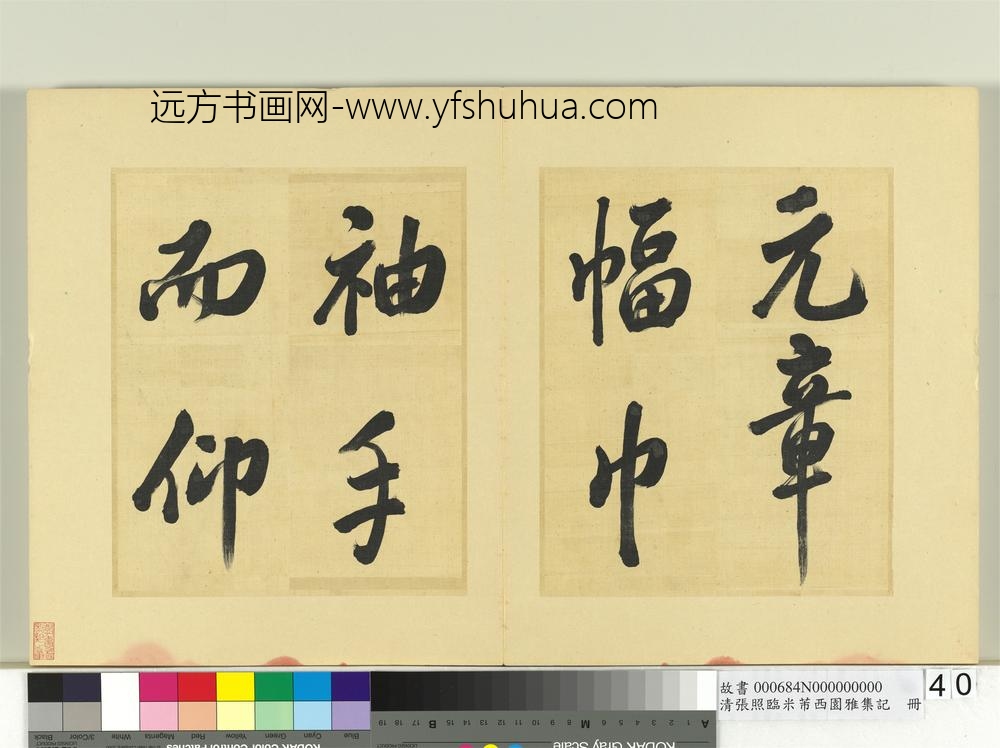 远方书画网-www.yfshuhua.com
元章
幅巾
袖手
而仰
故書 000684N000000000
清張照臨米芾西園雅集記 冊
40
Black
3/Color
White
Magenta
Red
Yellow
Green
Cyan
Blue
KODAK Color Control Patches
KODAK Gray Scale
A 1 2 3 4 5 6 M 8 9 10 11 12 13 14 15 B 17 18 19